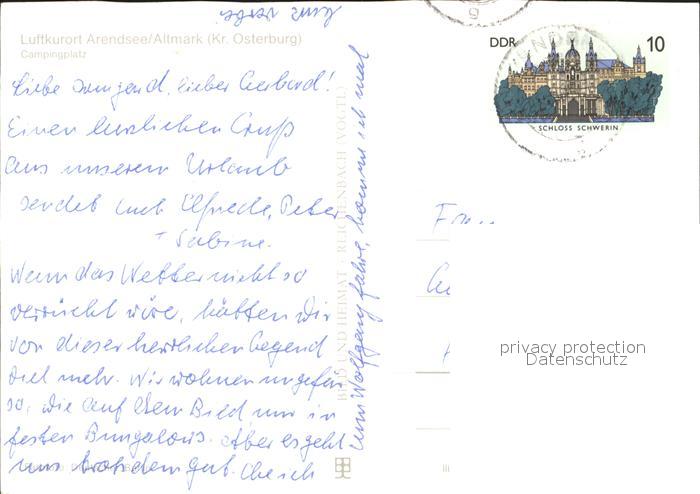 Luftkurort Arendsee/Altmark (Kr. Osterburg)
Campingplatz
Liebe Irmgard, lieber Gerhard!
Einen herzlichen Gruß
aus unserem Urlaub
sendet Euch Elfriede, Peter
+ Sabine.
Wenn das Wetter nicht so
verrückt wäre, hätten wir
von dieser herrlichen Gegend
viel mehr. Wir wohnen ungefähr
so, wie auf dem Bild, nur in
festen Bungalows. Aber es geht
uns trotzdem gut. Ehe ich
zum Wolfgang fahre, komme ich mal
BILD UND HEIMAT REICHENBACH (VOGTL)
DDR
10
SCHLOSS SCHWERIN
privacy protection
Datenschutz